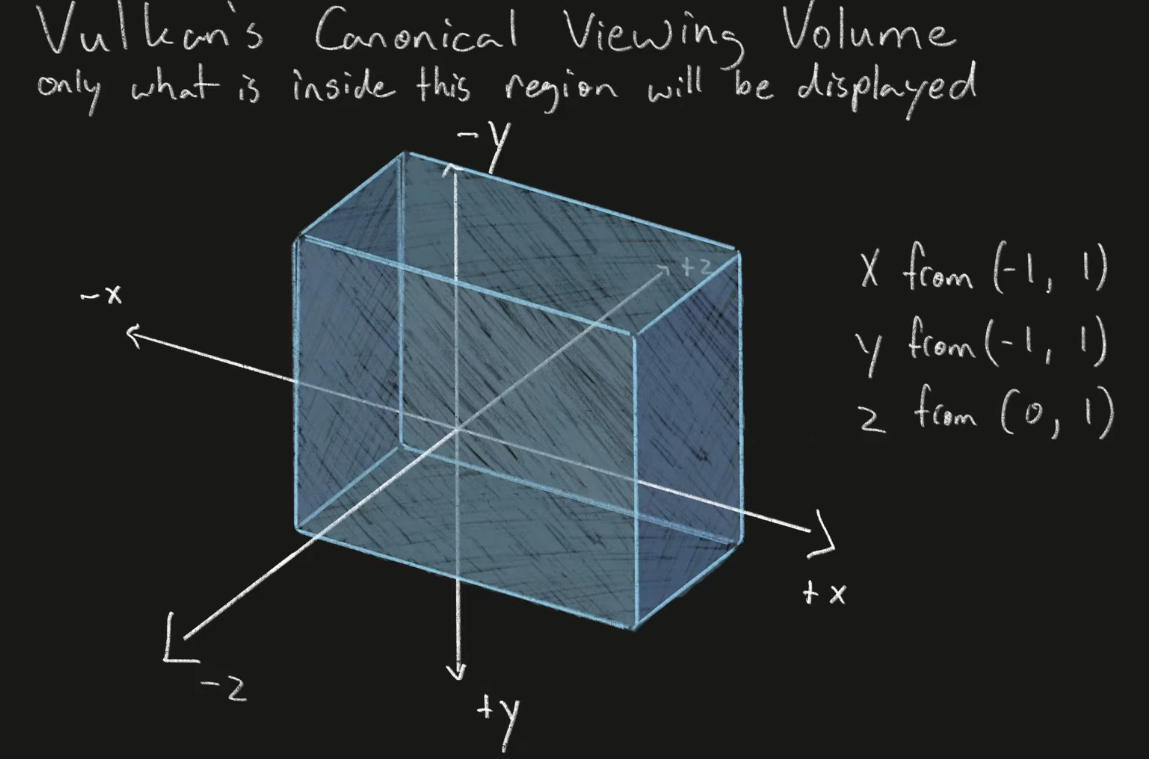 Vulkan's Canonical Viewing Volume
only what is inside this region will be displayed
-y
+z
-x
x from (-1, 1)
y from (-1, 1)
z from (0, 1)
+x
-z
+y